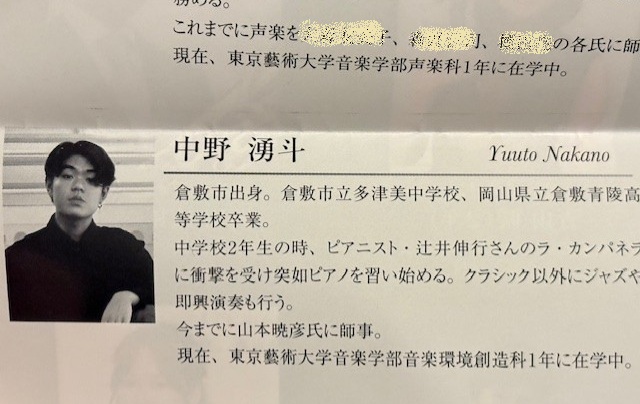 務める。
これまでに声楽を 子、 司、 の各氏に師
現在、東京藝術大学音楽学部声楽科1年に在学中。
中野 湧斗 Yuuto Nakano
倉敷市出身。倉敷市立多津美中学校、岡山県立倉敷青陵高
等学校卒業。
中学校2年生の時、ピアニスト・辻井伸行さんのラ・カンパネラ
に衝撃を受け突如ピアノを習い始める。クラシック以外にジャズや
即興演奏も行う。
今までに山本暁彦氏に師事。
現在、東京藝術大学音楽学部音楽環境創造科1年に在学中。